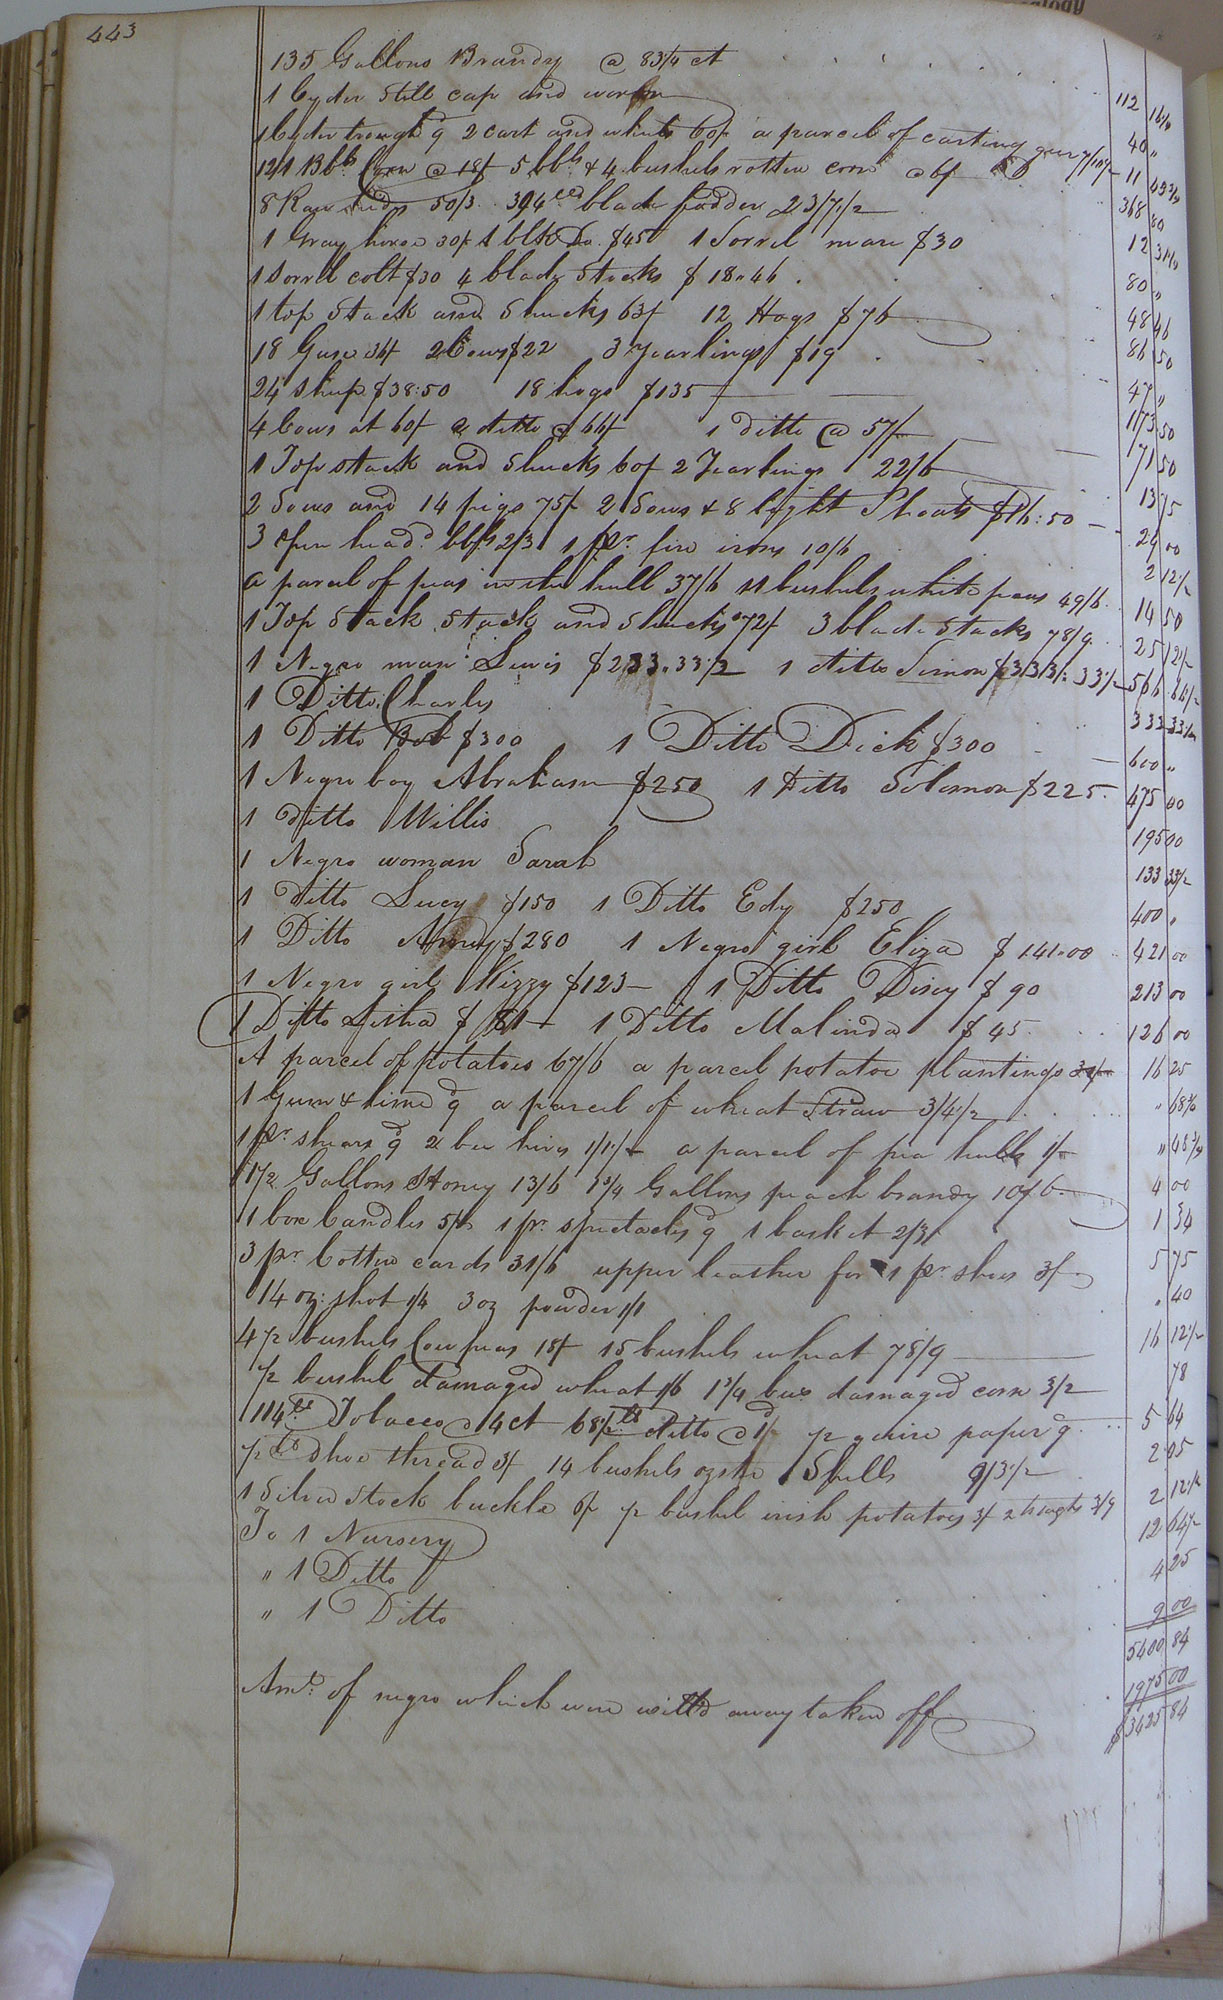 443
135 Gallons Brandy @ 83¼ ct 112
1 Cyder Still cap and worm 40 "
1 Cyder trough 9 2 cart and wheels 60/ a parcel of casting gear 7/10½ 11
121 Bbls Corn @ 18/ 5 bbls & 4 bushels rotten corn @ 6/ 368 80
8 Raw hides 50/3 394 blade fodder 23/7½ 12
1 Gray horse 30/ 1 blk Do. $45 1 Sorrel mare $30 80 "
1 Sorrel colt $30 4 blade Stacks $18.46 48 46
1 top Stack and Shucks 63/ 12 Hogs $76 86 50
18 Geese 34/ 2 Cows $22 3 Yearlings $19 47 "
24 Sheep $38:50 18 hogs $135 173 50
4 Cows at 60/ 2 ditto @ 66/ 1 ditto @ 57/ 71 50
1 Top stack and Shucks 60/ 2 Yearlings 22/6 13 75
2 Sows and 14 pigs 75/ 2 Sows & 8 light Shoats $16:50 29 00
3 open head. bbls 2/3 1 pr. fire irons 10/6 2 12½
a parcel of peas in the hull 37/6 11 bushels white peas 49/6 14 50
1 Top Stack Stack and Shucks 72/ 3 blade Stacks 78/9 25 12½
1 Negro man Lewis $233.33½ 1 ditto Simon $333.33½ 566 66½
1 Ditto Charles 333 33
1 Ditto Bob $300 1 Ditto Dick $300 600 "
1 Negro boy Abraham $250 1 Ditto Solomon $225 475 00
1 ditto Willis 195 00
1 Negro woman Sarah 133 33½
1 Ditto Lucy $150 1 Ditto Edy $250 400 "
1 Ditto $280 1 Negro girl Eliza $141.00 421 00
1 Negro girl Kizzy $123 1 Ditto Disey $90 213 00
1 Ditto $81 1 Ditto Malinda $45 126 00
A parcel of potatoes 67/6 a parcel potatoe plantings 16 25
1 Gum & lime 9 a parcel of wheat Straw 3/4½ " 68¾
1 pr. shears 9 2 bee hives 1/1½ a parcel of pea hulls 1/ " 48¾
1½ Gallons Honey 13/6 Gallons peach brandy 10/6 4 00
1 box Candles 5/ 1 pr. spectacles 9 1 basket 2/3 1 34
3 pr. Cotton cards 31/6 upper leather for 1 pr shoes 3/ 5 75
14 oz: shot 1/4 3 oz powder 1/1 . 40
4½ bushels Cowpeas 18/ 15 bushels wheat 78/9 16 12½
½ bushel damaged wheat 1/6 1¾ bus damaged corn 3/2 78
114 lbs Tobacco @ 4 ct 68½ lbs ditto @ 1d ½ quire paper 9 5 64
½ lb Shoe thread 3/ 14 bushels oyster Shells 9/3½ 2 05
1 Silver Stock buckle 6/ ½ bushel irish potatoes 3/ 2 troughs 3/9 2 12½
To 1 Nursery 12 64½
" 1 Ditto 4 25
" 1 Ditto 9 00
5400 84
Amt. of negro which were will'd away taken off 1975 00
$3425 84